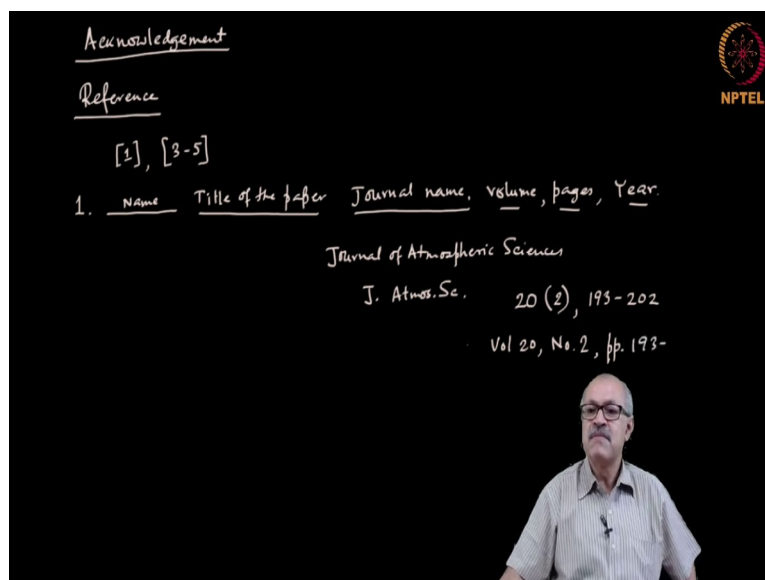 Acknowledgement
NPTEL
Reference
[1], [3-5]
1. Name Title of the paper Journal name, volume, pages, Year.
Journal of Atmospheric Sciences
J. Atmos. Sc. 20 (2), 193-202
Vol 20, No. 2, pp. 193-